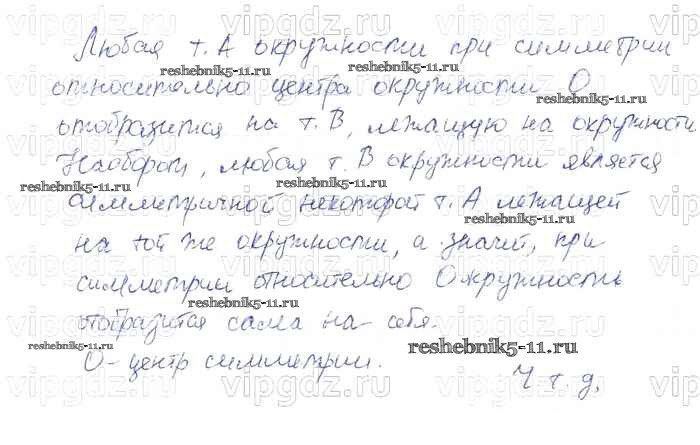 Любая т. А окружности при симметрии
относительно центра окружности О
отобразится на т. В, лежащую на окружности
Наоборот, любая т. В окружности является
симметричной некоторой т. А лежащей
на той же окружности, а значит, при
симметрии относительно О окружность
отобразится сама на себя.
О - центр симметрии.
Ч т. д.
vipgdz.ru
reshebnik5-11.ru